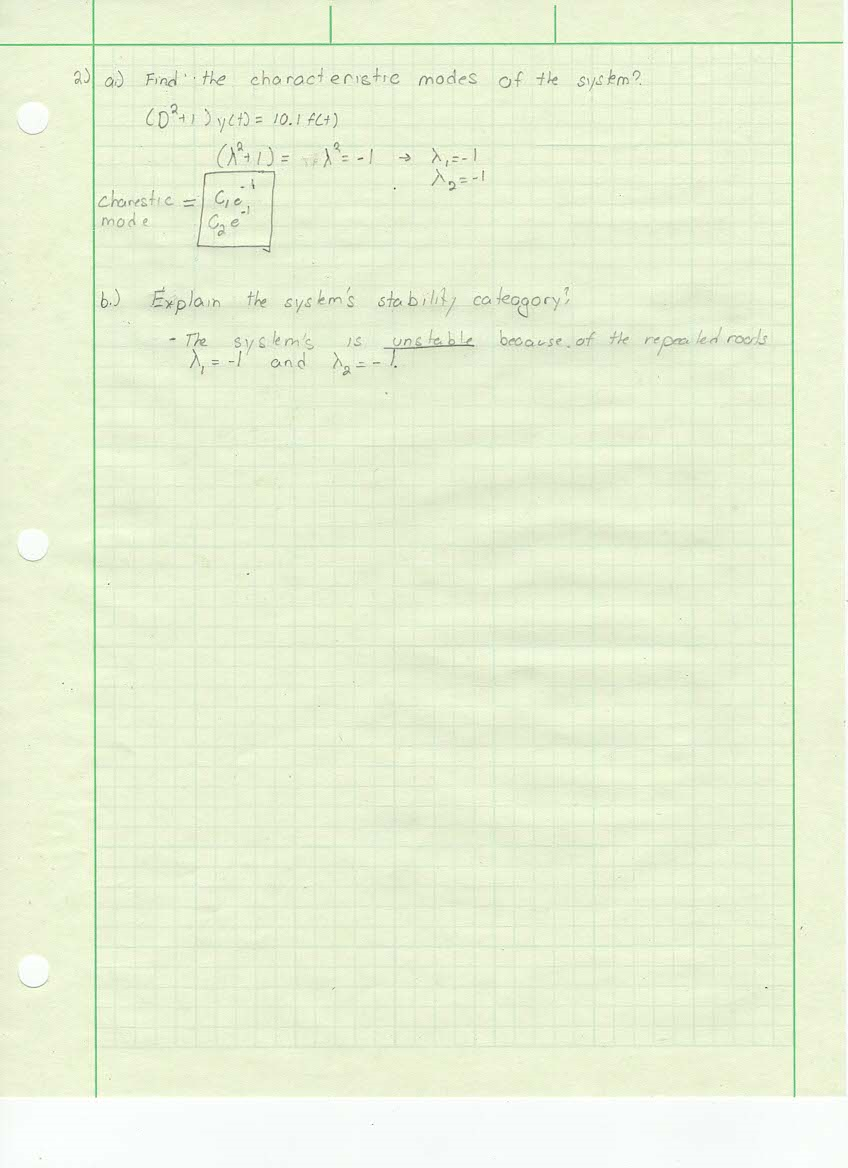 2.) a.) Find the characteristic modes of the system?
(D²+1) y(t) = 10.1 f(t)
(λ²+1) = λ² = -1 → λ₁=-1
λ₂=-1
Charestic = C₁e⁻¹
mode C₂e⁻¹
b.) Explain the system's stability cateagory?
- The system's is unstable because of the repealed roods
λ₁ = -1 and λ₂ = -1.